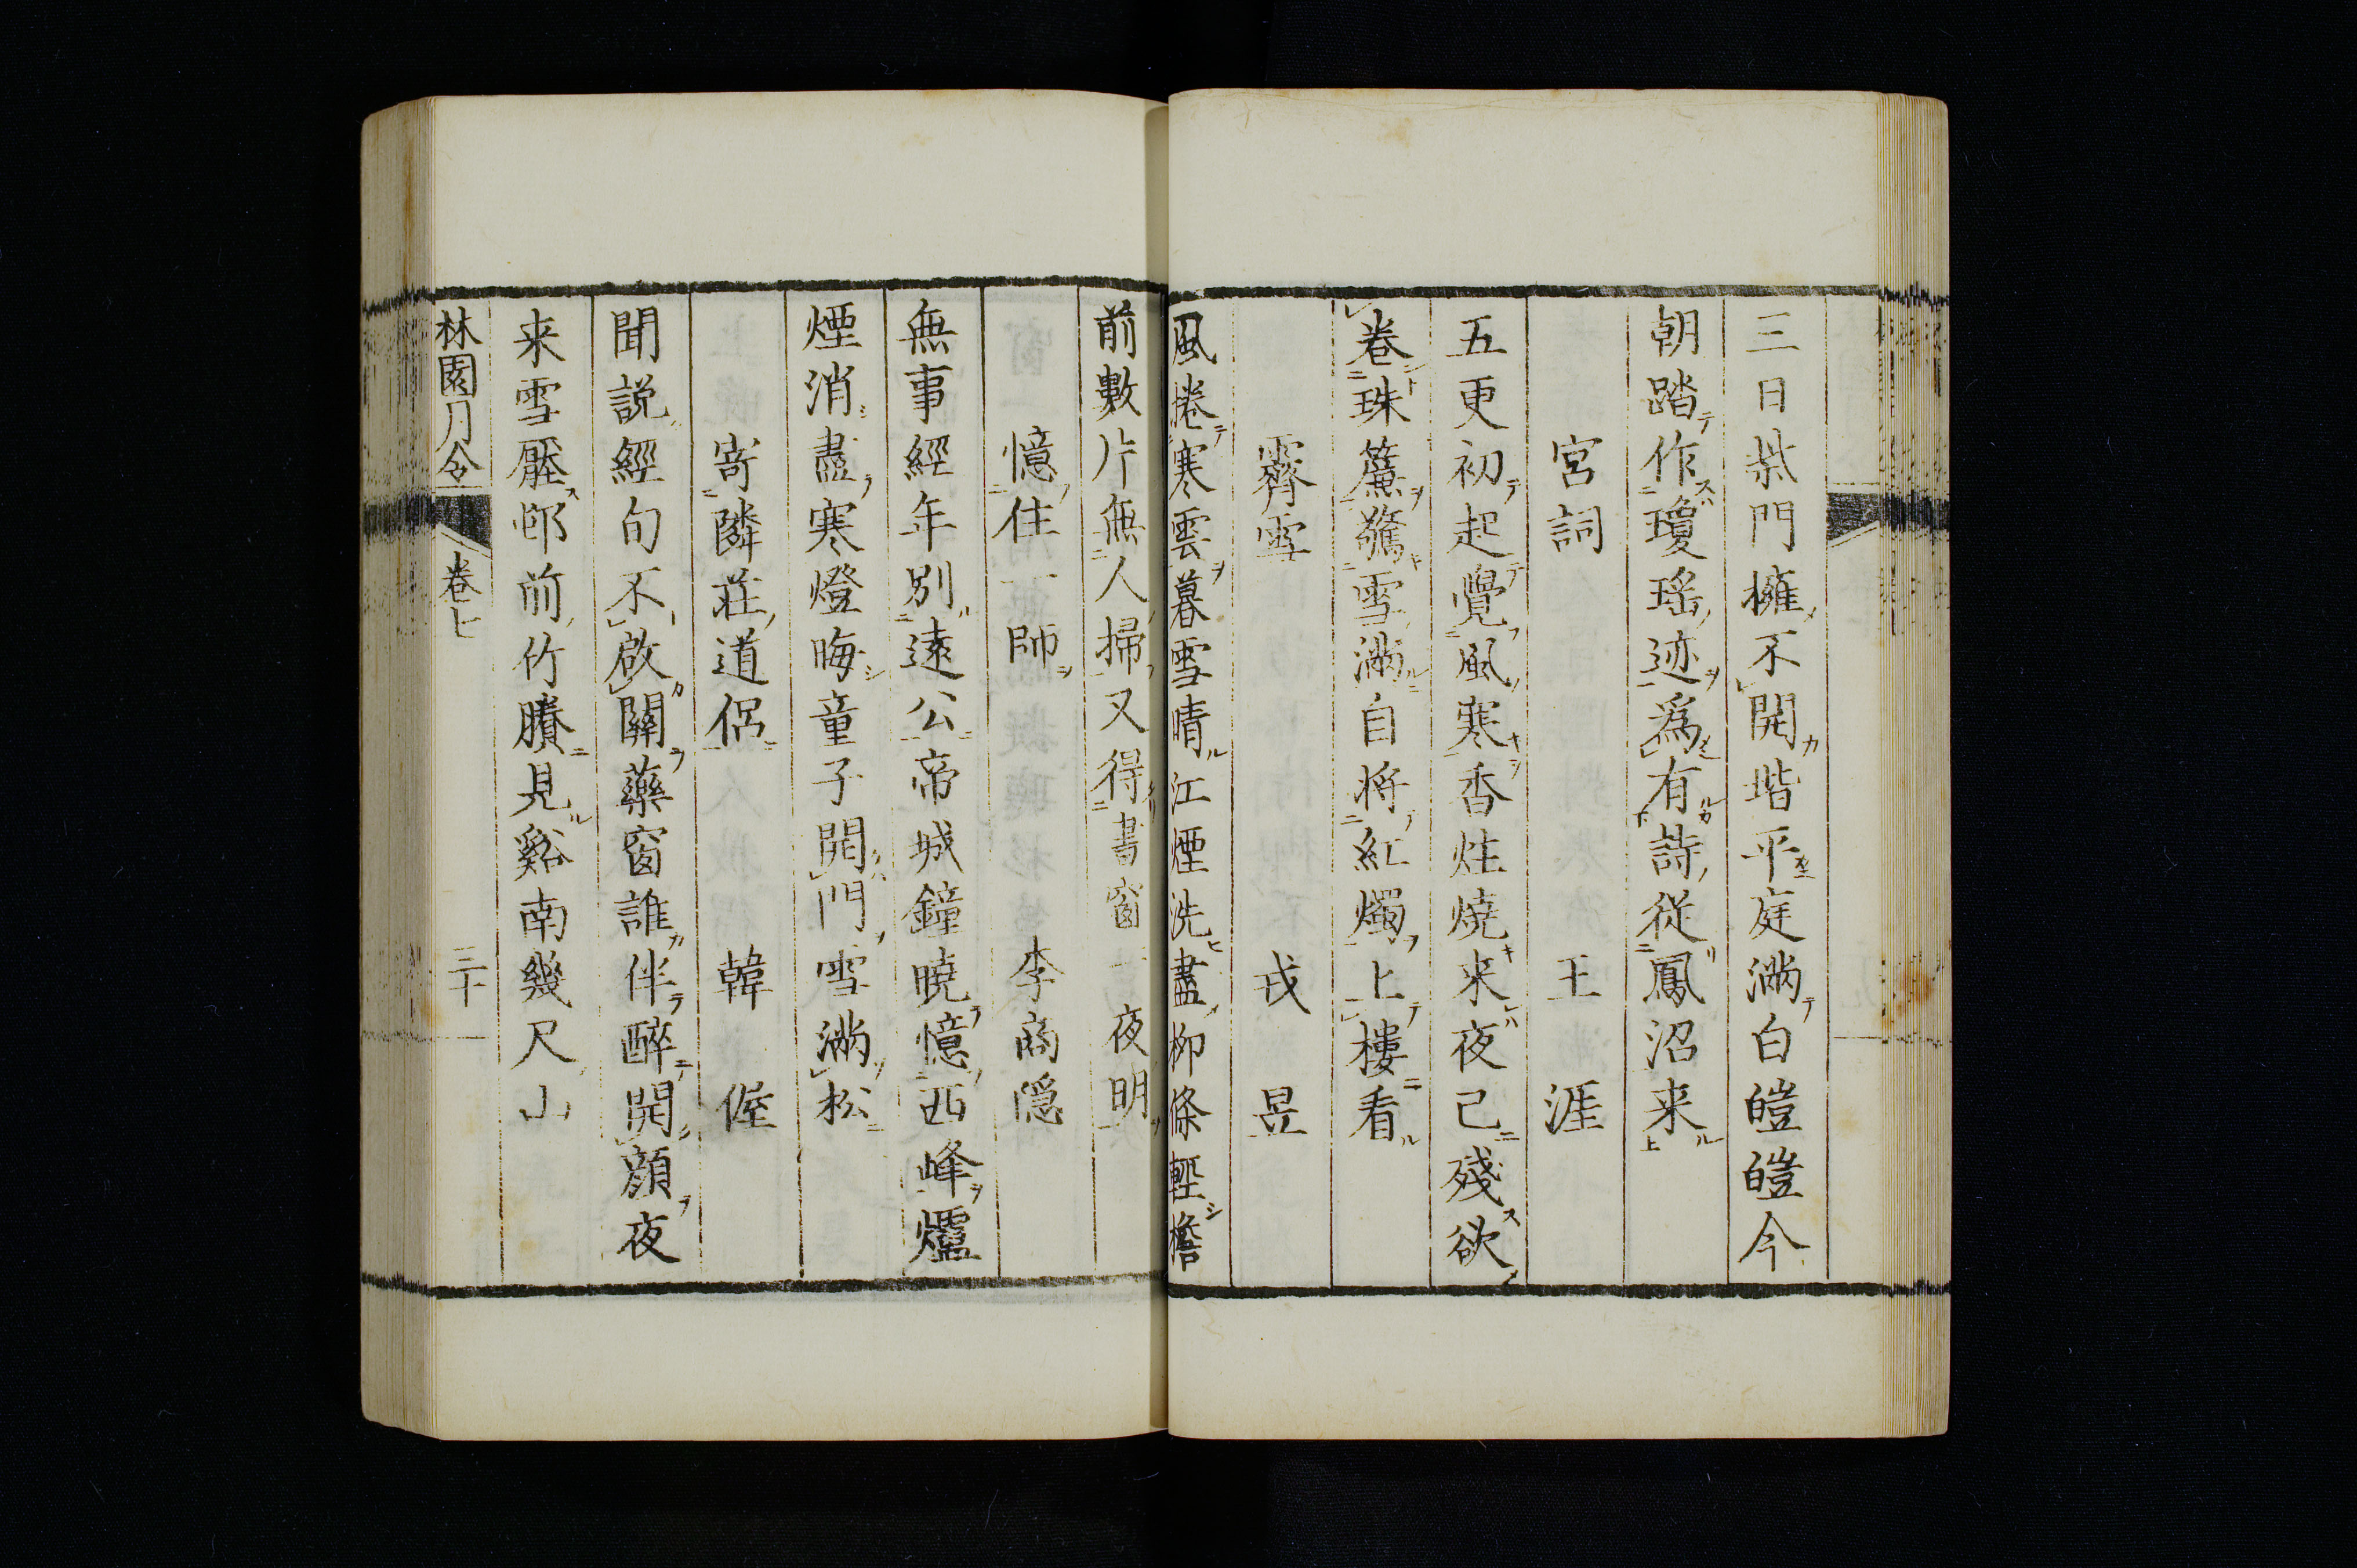 三日柴門擁不開堦平庭滿白皚皚今
朝踏作瓊瑶迹爲有詩從鳳沼来
宮詞　王涯
五更初起覺風寒香炷燒来夜已殘欲
卷珠簾驚雪滿自將紅燭上樓看
霽雪　戎昱
風捲寒雲暮雪晴江煙洗盡柳條輕檐
前數片無人掃又得書窗一夜明
憶住一師　李商隱
無事經年別遠公帝城鐘曉憶西峰爐
煙消盡寒燈晦童子開門雪滿松
寄隣莊道侶　韓偓
聞説經旬不啟關藥窗誰伴醉開顔夜
来雪壓邨前竹賸見谿南幾尺山
林園月令　卷七　三十